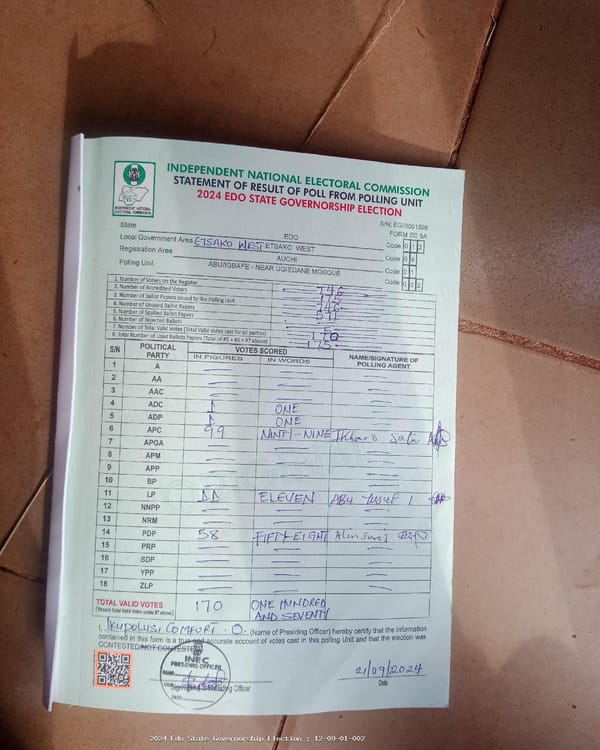 INDEPENDENT NATIONAL ELECTORAL COMMISSION
STATEMENT OF RESULT OF POLL FROM POLLING UNIT
2024 EDO STATE GOVERNORSHIP ELECTION
S/N: EG/0001598
FORM EC 8A
State EDO Code 0 1 2
Local Government Area ETSAKO WEST ETSAKO WEST Code 0 9
Registration Area AUCHI Code 0 1
Polling Unit ABUMGBAPE - NEAR UGIEDANE MOSQUE Code 0 0 2
1. Number of Voters on the Register 746
2. Number of Accredited Voters 175
3. Number of Ballot Papers Issued to the Polling Unit 746
4. Number of Unused Ballot Papers 571
5. Number of Spoiled Ballot Papers
6. Number of Rejected Ballots
7. Number of Total Valid Votes (Total Valid Votes cast for all parties) 170
8. Total Number of Used Ballots Papers (Total of #5 + #6 + #7 above) 175
S/N POLITICAL PARTY VOTES SCORED NAME/SIGNATURE OF POLLING AGENT
IN FIGURES IN WORDS
1 A
2 AA
3 AAC
4 ADC 1 ONE
5 ADP 1 ONE
6 APC 99 NINTY-NINE
7 APGA
8 APM
9 APP
10 BP
11 LP 11 ELEVEN
12 NNPP
13 NRM
14 PDP 58 FIFTY EIGHT
15 PRP
16 SDP
17 YPP
18 ZLP
TOTAL VALID VOTES 170 ONE HUNDRED AND SEVENTY
I, IKUPOLUSI COMFORT. O. (Name of Presiding Officer) hereby certify that the information
contained in this form is a true and accurate account of votes cast in this polling Unit and that the election was
CONTESTED/NOT CONTESTED
INEC
PRESIDING OFFICER
Signature of Presiding Officer
21/09/2024
Date
2024 Edo State Governorship Election : 12-09-01-002